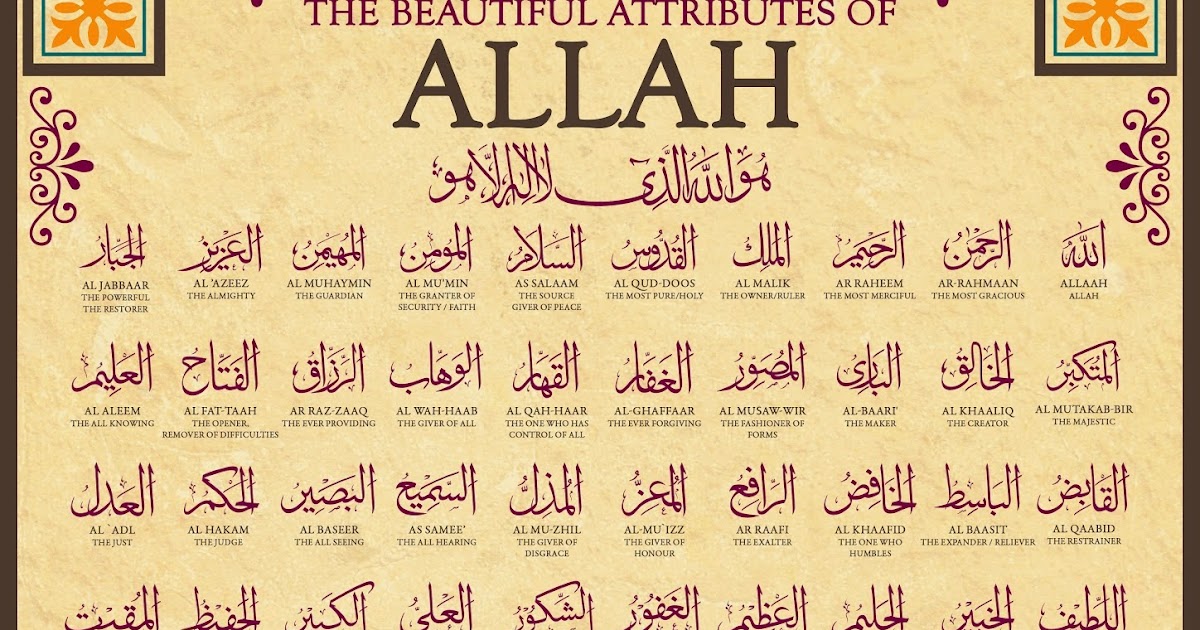 THE BEAUTIFUL ATTRIBUTES OF
ALLAH
هُوَ اللهُ الَّذِي لَا إِلٰهَ إِلَّا هُوَ
اللَّهُ
ALLAAH
ALLAH
الرَّحْمٰنُ
AR-RAHMAAN
THE MOST GRACIOUS
الرَّحِيْمُ
AR RAHEEM
THE MOST MERCIFUL
المَلِكُ
AL MALIK
THE OWNER/RULER
القُدُّوْسُ
AL QUD-DOOS
THE MOST PURE/HOLY
السَّلَامُ
AS SALAAM
THE SOURCE
GIVER OF PEACE
المُؤْمِنُ
AL MU'MIN
THE GRANTER OF
SECURITY / FAITH
المُهَيْمِنُ
AL MUHAYMIN
THE GUARDIAN
العَزِيْزُ
AL 'AZEEZ
THE ALMIGHTY
الجَبَّارُ
AL JABBAAR
THE POWERFUL
THE RESTORER
المُتَكَبِّرُ
AL MUTAKAB-BIR
THE MAJESTIC
الخَالِقُ
AL KHAALIQ
THE CREATOR
البَارِئُ
AL-BAARI'
THE MAKER
المُصَوِّرُ
AL MUSAW-WIR
THE FASHIONER OF
FORMS
الغَفَّارُ
AL-GHAFFAAR
THE EVER FORGIVING
القَهَّارُ
AL QAH-HAAR
THE ONE WHO HAS
CONTROL OF ALL
الوَهَّابُ
AL WAH-HAAB
THE GIVER OF ALL
الرَّزَّاقُ
AR RAZ-ZAAQ
THE EVER PROVIDING
الفَتَّاحُ
AL FAT-TAAH
THE OPENER,
REMOVER OF DIFFICULTIES
العَلِيْمُ
AL ALEEM
THE ALL KNOWING
القَابِضُ
AL QAABID
THE RESTRAINER
البَاسِطُ
AL BAASIT
THE EXPANDER / RELIEVER
الخَافِضُ
AL KHAAFID
THE ONE WHO
HUMBLES
الرَّافِعُ
AR RAAFI
THE EXALTER
المُعِزُّ
AL-MU`IZZ
THE GIVER OF
HONOUR
المُذِلُّ
AL MU-ZHIL
THE GIVER OF
DISGRACE
السَّمِيْعُ
AS SAMEE'
THE ALL HEARING
البَصِيْرُ
AL BASEER
THE ALL SEEING
الحَكَمُ
AL HAKAM
THE JUDGE
العَدْلُ
AL `ADL
THE JUST
اللَّطِيْفُ
الخَبِيْرُ
الحَلِيْمُ
العَظِيْمُ
الغَفُوْرُ
الشَّكُوْرُ
العَلِيُّ
الكَبِيْرُ
الحَفِيْظُ
المُقِيْتُ